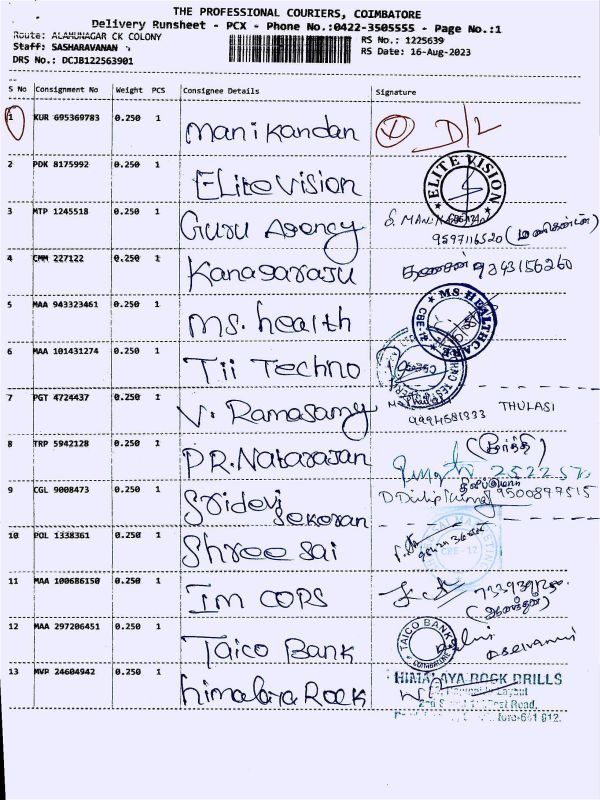 THE PROFESSIONAL COURIERS, COIMBATORE
Delivery Runsheet - PCX - Phone No.:0422-3505555 - Page No.:1
Route: ALAMUNAGAR CK COLONY RS No.: 1225639
Staff: SASHARAVANAN RS Date: 16-Aug-2023
DRS No.: DCJB122563901
S No Consignment No Weight PCS Consignee Details Signature
1 KUR 695369783 0.250 1 Manikandan D/L
2 PDK 8175992 0.250 1 ELite Vision ELITE VISION
3 MTP 1245518 0.250 1 Guru Agency
9597116520 (மணிகண்டன்)
4 CMM 227122 0.250 1 Kanagaraju கணேசன் 9843156260
5 MAA 943323461 0.250 1 Ms. health MS HEALTHCARE CBE-12
6 MAA 101431274 0.250 1 Tii Techno
7 PGT 4724437 0.250 1 V. Ramasamy THULASI
8 TRP 5942128 0.250 1 P.R. Natarajan
9 CGL 9008473 0.250 1 Sridevi Sekaran 9500897515
10 POL 1338361 0.250 1 Shree Sai CBE - 12
11 MAA 100686150 0.250 1 IM COPS
12 MAA 297206451 0.250 1 Taico Bank TAICO BANK COIMBATORE
13 MVP 24604942 0.250 1 himalaya Rock HIMALAYA ROCK DRILLS